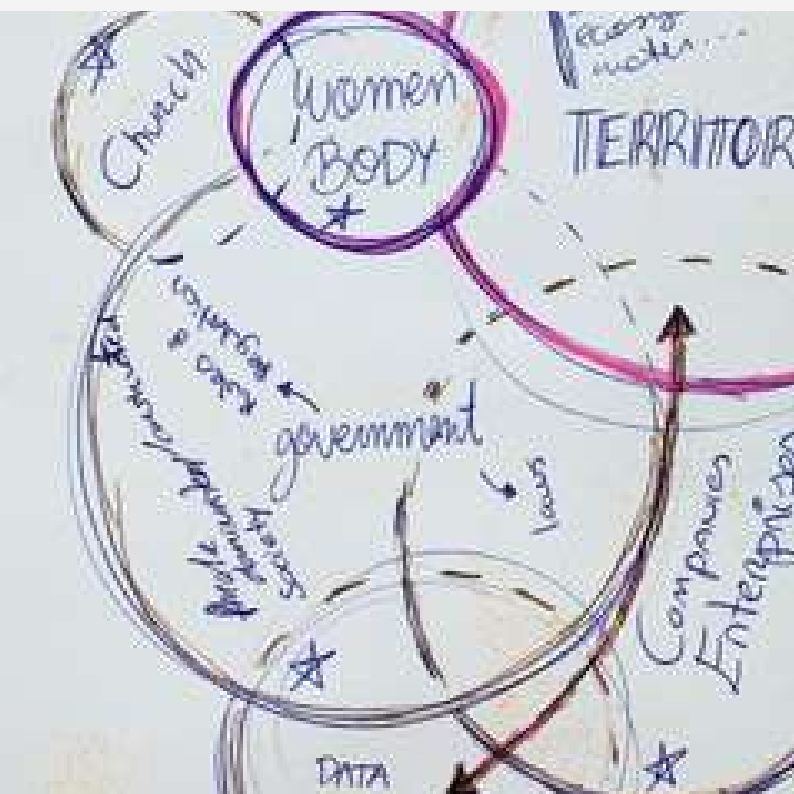 Church
women
BODY
TERRITOR
rules &
regulation
government
laws
society
Companies
Enterprises
DATA